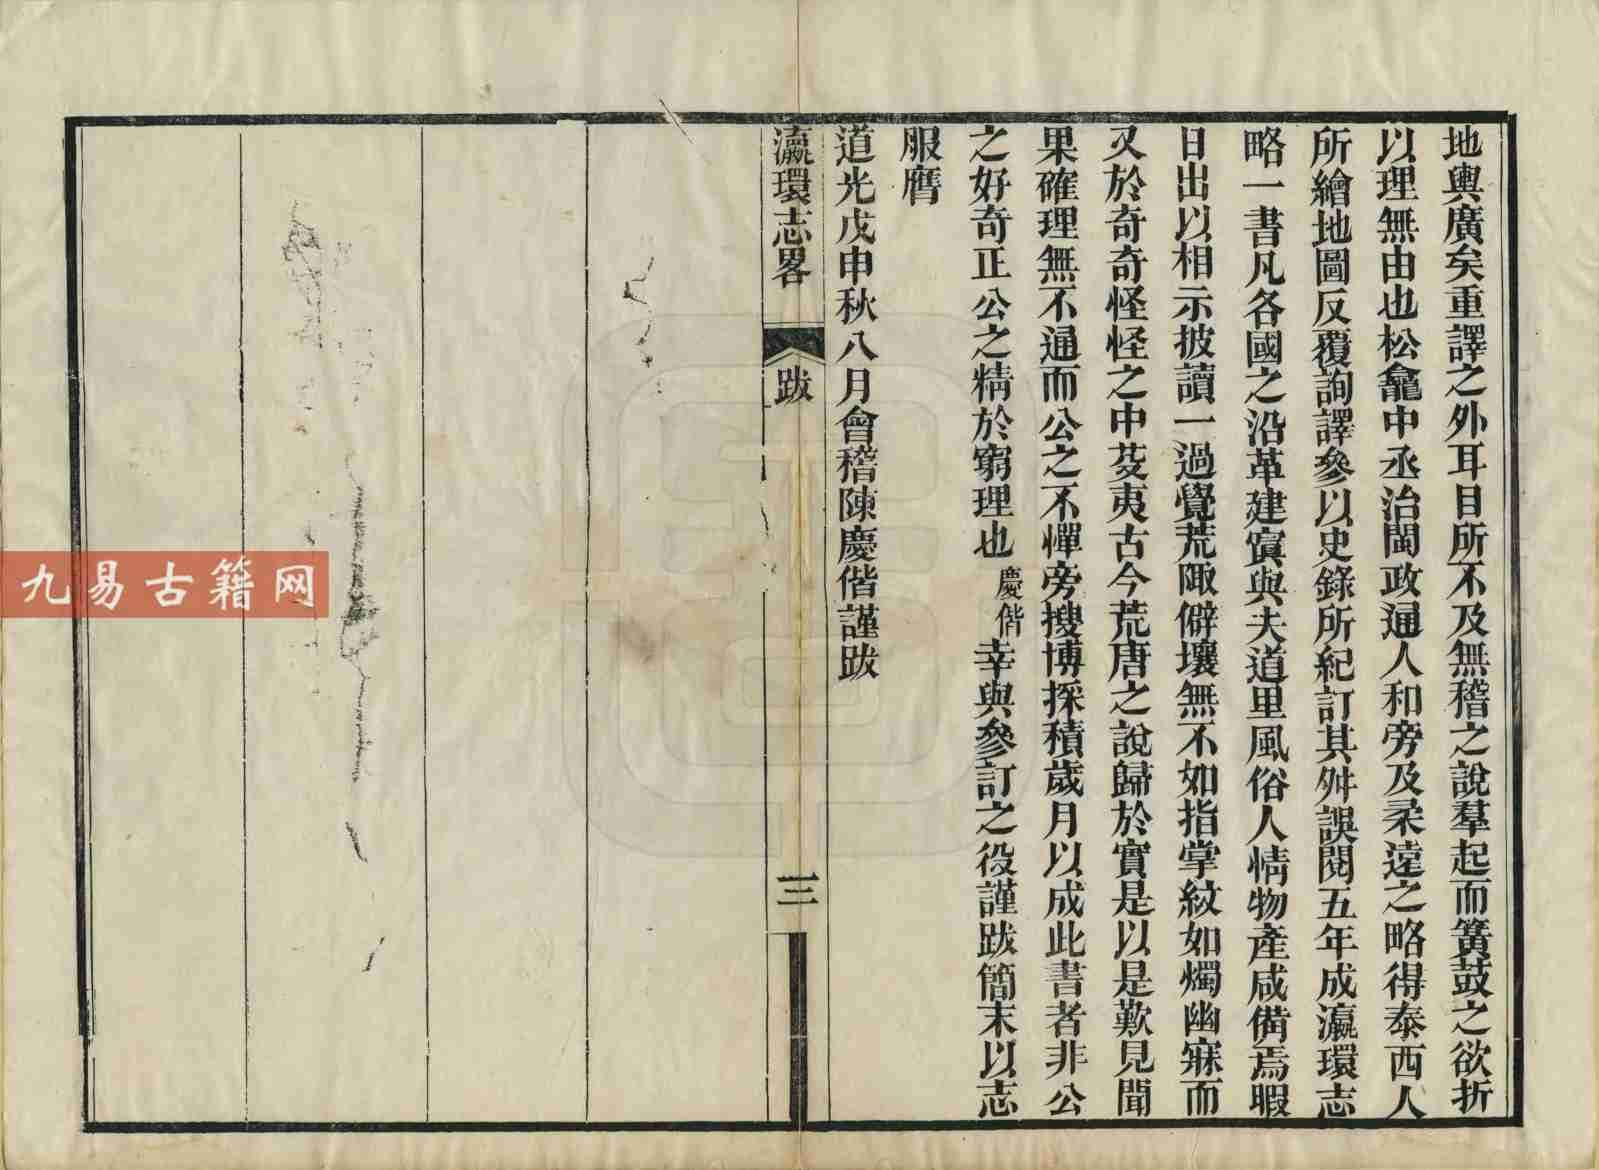 地輿廣矣重譯之外耳目所不及無稽之說羣起而簧鼓之欲折
以理無由也松龕中丞治閩政通人和旁及柔遠之略得泰西人
所繪地圖反覆詢譯參以史錄所紀訂其舛誤閱五年成瀛環志
略一書凡各國之沿革建寘與夫道里風俗人情物產咸備焉暇
日出以相示披讀一過覺荒陬僻壤無不如指掌紋如燭幽寐而
又於奇奇怪怪之中芟夷古今荒唐之說歸於實是以是歎見聞
果確理無不通而公之不憚旁搜博採積歲月以成此書者非公
之好奇正公之精於窮理也慶偕幸與參訂之役謹跋簡末以志
服膺
道光戊申秋八月會稽陳慶偕謹跋
瀛環志畧 跋 三
九易古籍网